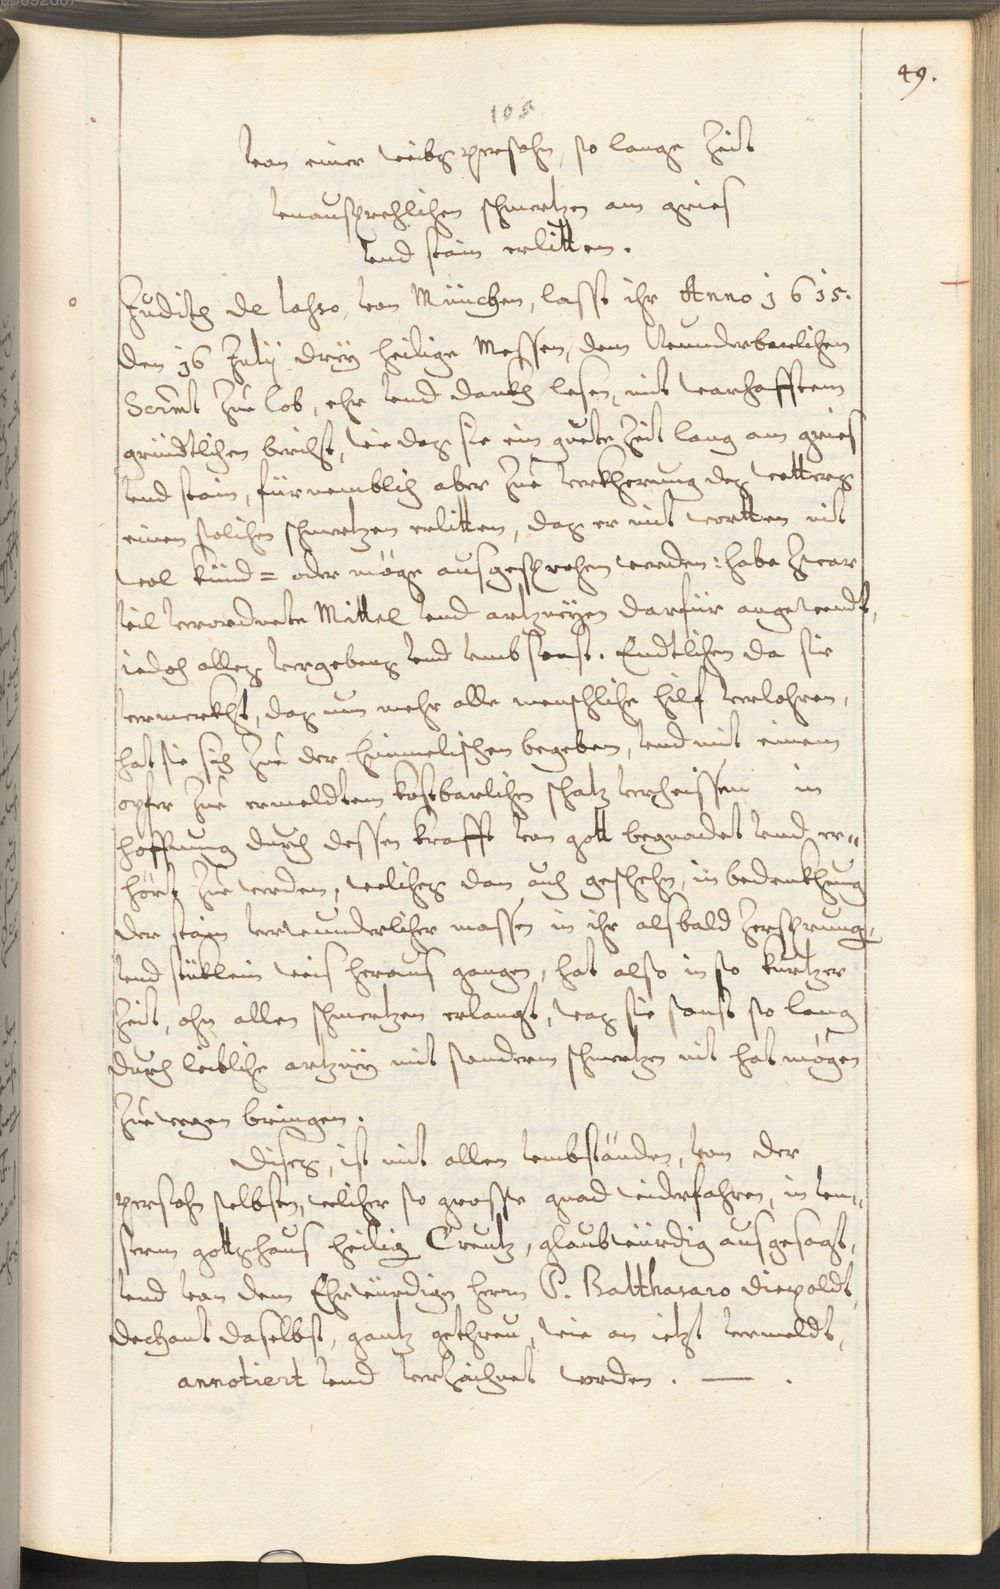 49.
105
Von einer weibspersohn, so lange Zeit
unaussprechlichen schmertzen am gries
und stain erlitten.
Judith de lasso, von München, lasst ihr Anno 1615.
den 16 Julij dreÿ heilige Messen, dem wunderbarlichen
Scrmt zue lob, ehr und danckh lesen, mit warhafftem
gründtlichen bericht, wie das sie ein guete Zeit lang am gries
und stain, fürnemblich aber zue verkherung des wetters
einen solichen schmertzen erlitten, das er mit wortten nit
wol künd= oder möge ausgesprochen werden: habe zwar
vil verordnete Mittel und artzneÿen darfür angewendt,
iedoch alles vergebens und umb sonst. Endtlichen da sie
vermerckht, das nun mehr alle menschliche hilf verlohren,
hat sie sich zue der himmelischen begeben, und mit einem
opfer zue ermeldtem kostbarlichen schatz verheissen in
hoffnung durch dessen krafft von gott begnadet und er"
hört zue werden, weliches dan auch geschehen, in bedenckhung
der stain verwunderlicher massen in ihr alsbald zersprung,
und stücklein weis heraus gangen, hat also in so kurtzer
Zeit, ohn allen schmertzen erlangt, was sie sonst so lang
durch leibliche artzneÿ mit sonderm schmertzen nit hat mögen
zue wegen bringen.
Dises, ist mit allen umbständen, von der
persohn selbsten, welicher so grosse gnad widerfahren, in un"
serm gottshaus heilig Creutz, glaubwürdig ausgesagt,
und von dem Ehrwürdigen herrn P. Balthasaro diepoldt,
dechant daselbst, gantz gethreu, wie an ietzt vermeldt,
annotiert und verzaichnet worden. — .